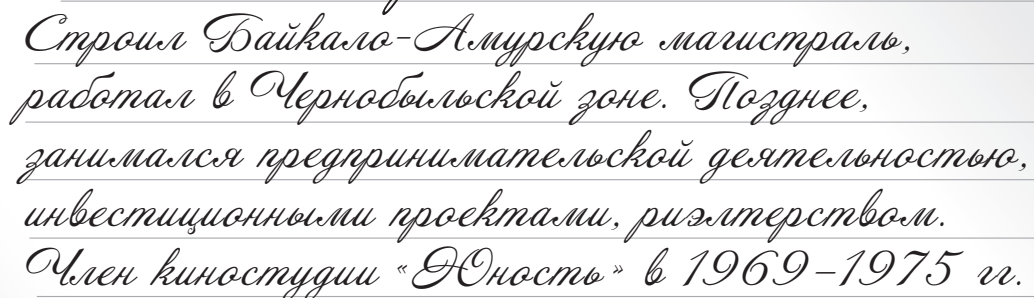 Строил Байкало-Амурскую магистраль,
работал в Чернобыльской зоне. Позднее,
занимался предпринимательской деятельностью,
инвестиционными проектами, риэлтерством.
Член киностудии «Юность» в 1969–1975 гг.